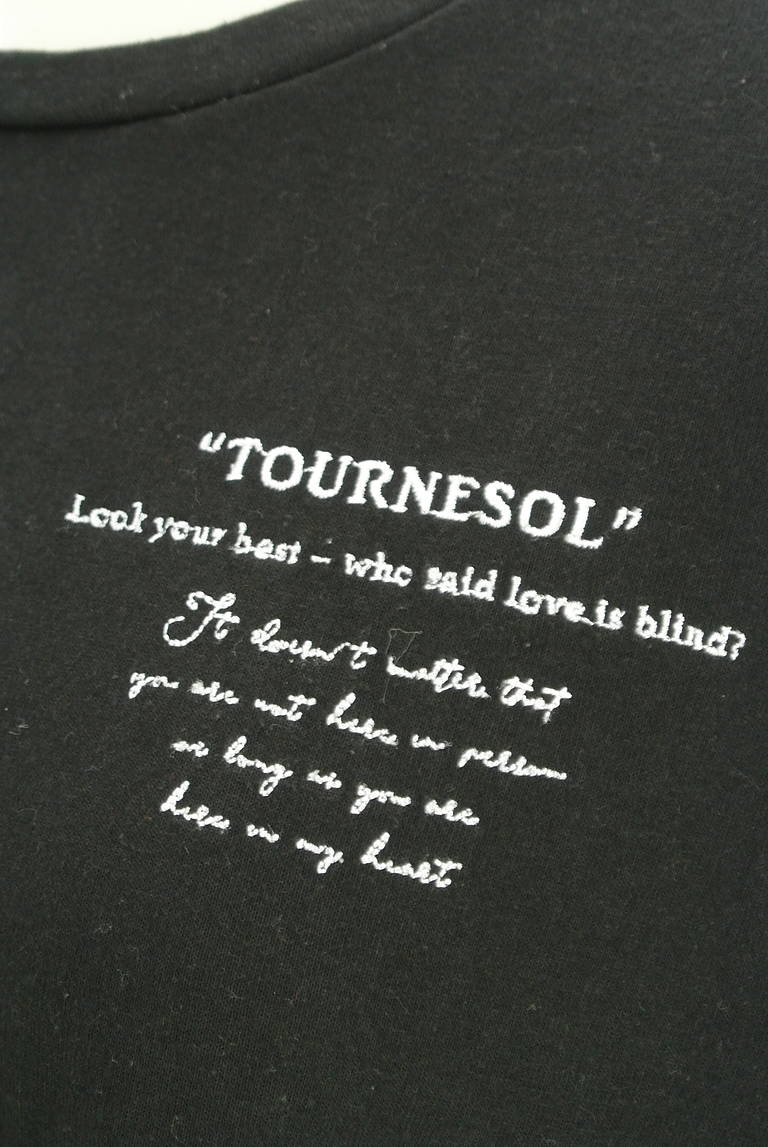 “TOURNESOL”
Look your best – who said love is blind?
It doesn't matter that
you are not here in person
as long as you are
here in my heart